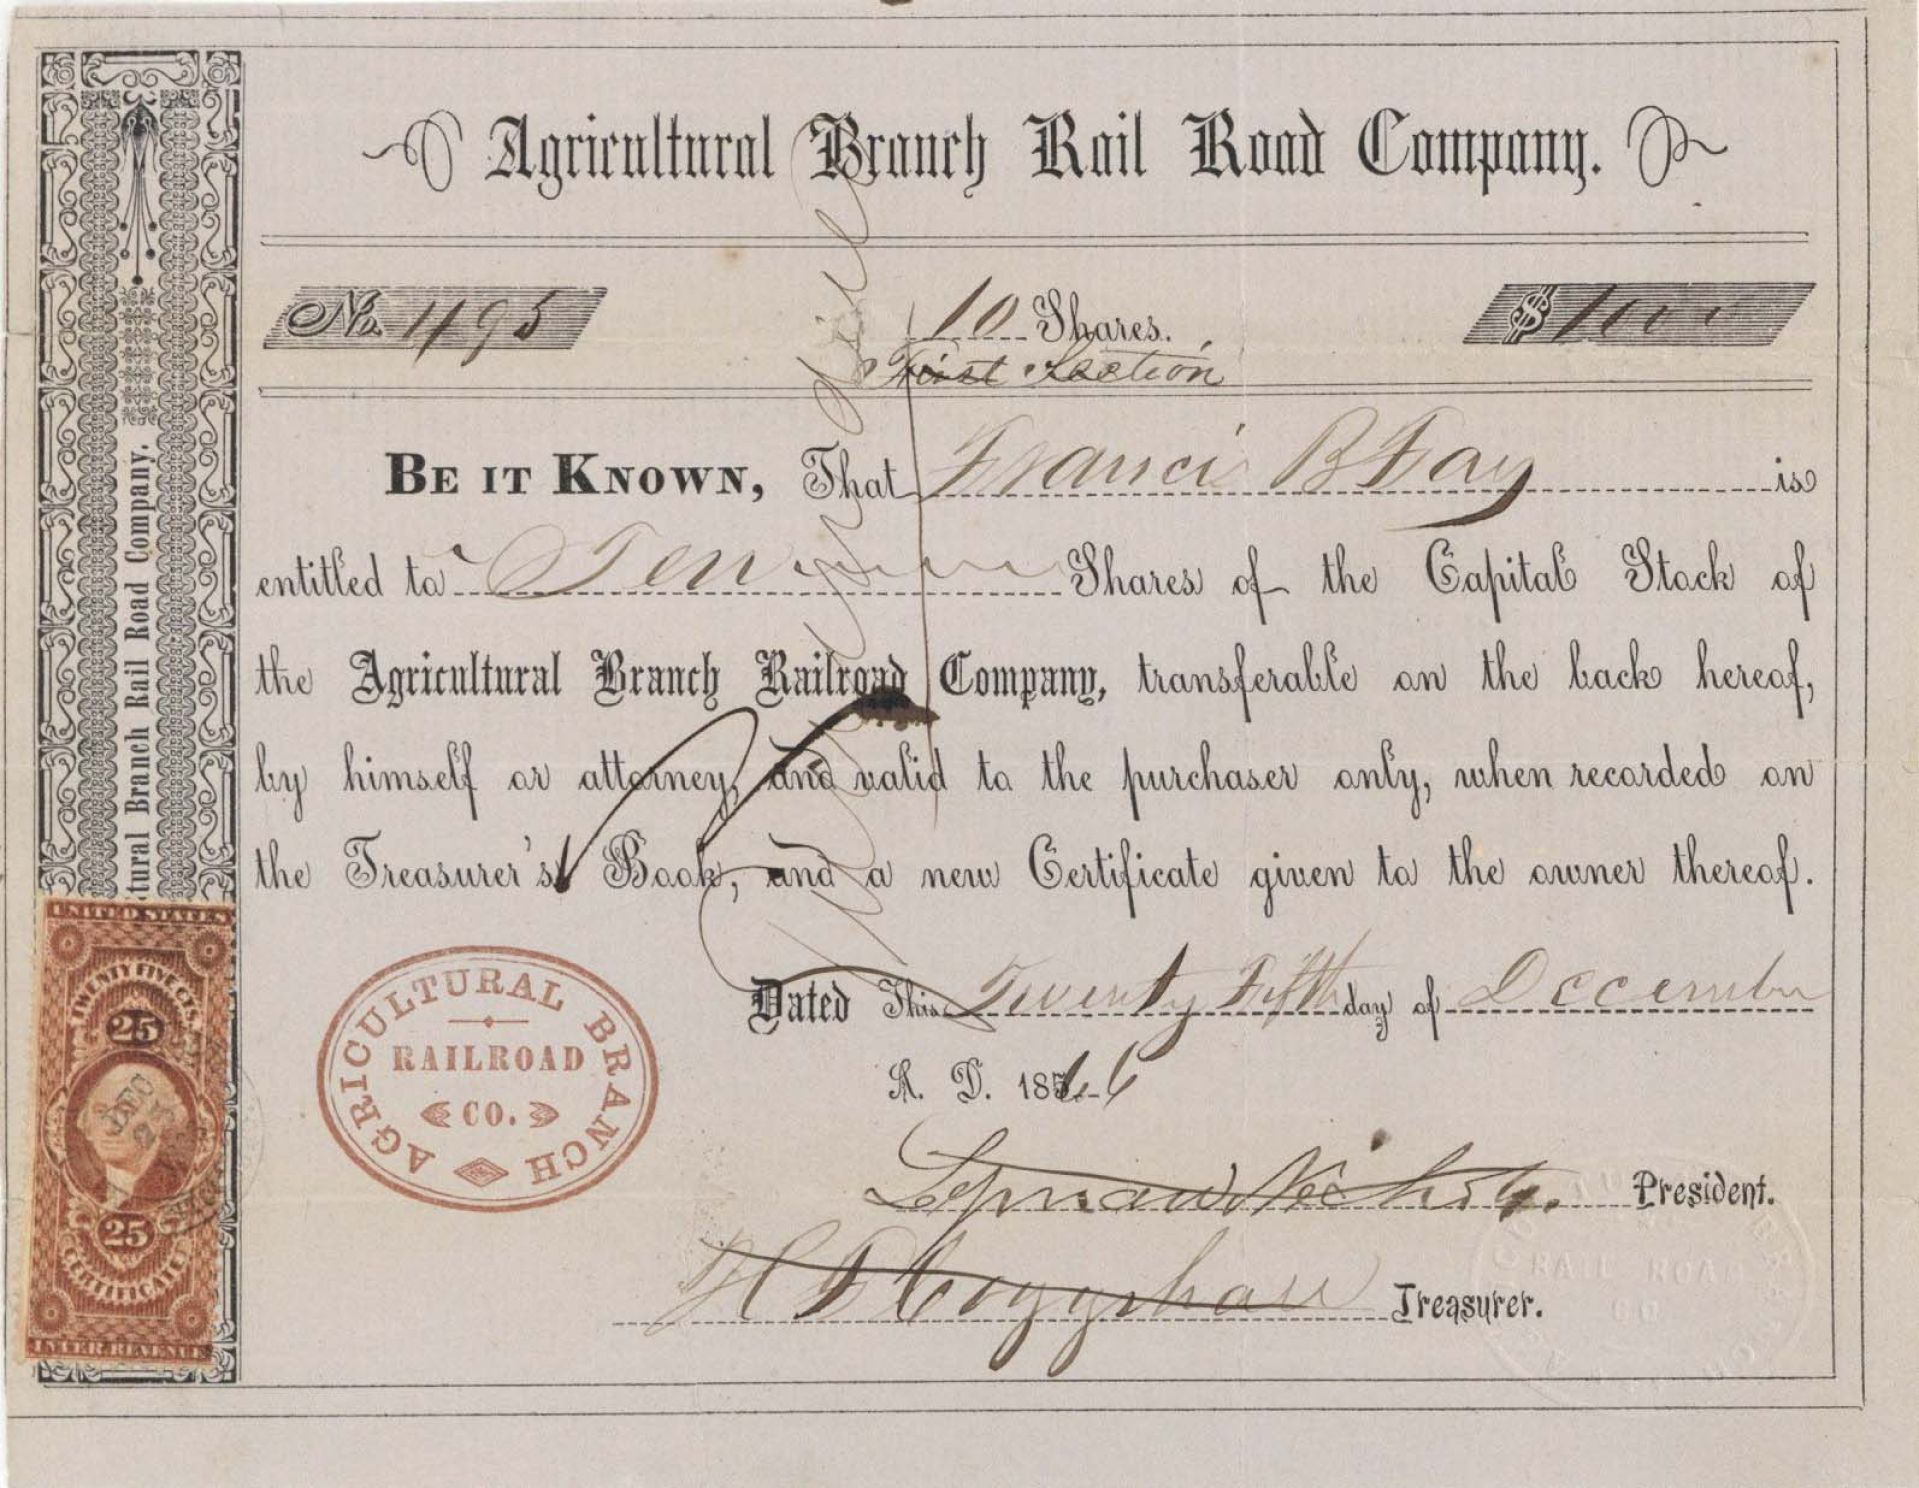 Agricultural Branch Rail Road Company.
No. 1495
10 Shares.
$1000
First Section
BE IT KNOWN, That Francis B Fay is
entitled to Ten Shares of the Capital Stock of
the Agricultural Branch Railroad Company, transferable on the back hereof,
by himself or attorney, and valid to the purchaser only, when recorded on
the Treasurer's Book, and a new Certificate given to the owner thereof.
Dated This Twenty Fifth day of December
A. D. 1866
President.
H F Coggshall Treasurer.
tural Branch Rail Road Company.
UNITED STATES
TWENTY FIVE CTS.
25
DEC
25
CERTIFICATE
INTER. REVENUE
AGRICULTURAL BRANCH
RAILROAD
CO.
RAIL ROAD
CO